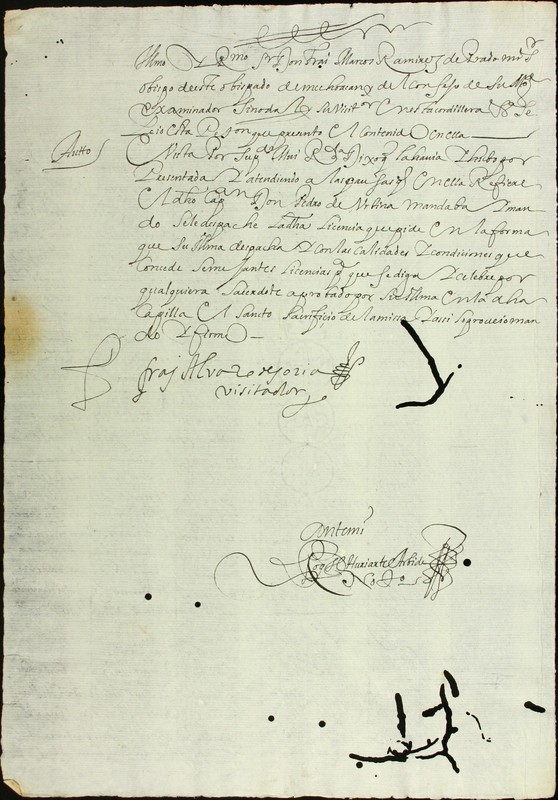 Illmo Y Rmo Sr Don frai Marcos Ramirez de Prado mi Sr
obispo deste obispado de mechoacan y del Consejo de Su Mgd
Examinador Sinodal y en esta cordillera Se
leio esta Petison que presento El contenido en ella
Autto
Vista Por Su pd Mui Rda Dixo q la havia Y hubo por
Presentada Y atendiendo a las en ella Refiere
El dho Capan Don Pedro de Urbina mandaba Y man
do Se le despache la dha Licencia que pide En la forma
que Su Illma despacha Y con las calidades Y condiciones que
Concede Seme Jantes Licencias pa que se diga Y celebre por
qualquiera Saserdote aprobado por Su Illma En la dha
Capilla El Santo Sacrificio de la missa Y assi lo proveio man
do Y firmo
fraj Alvaro de joria
visitador
Antemi
Huriarte Arbide
Noto